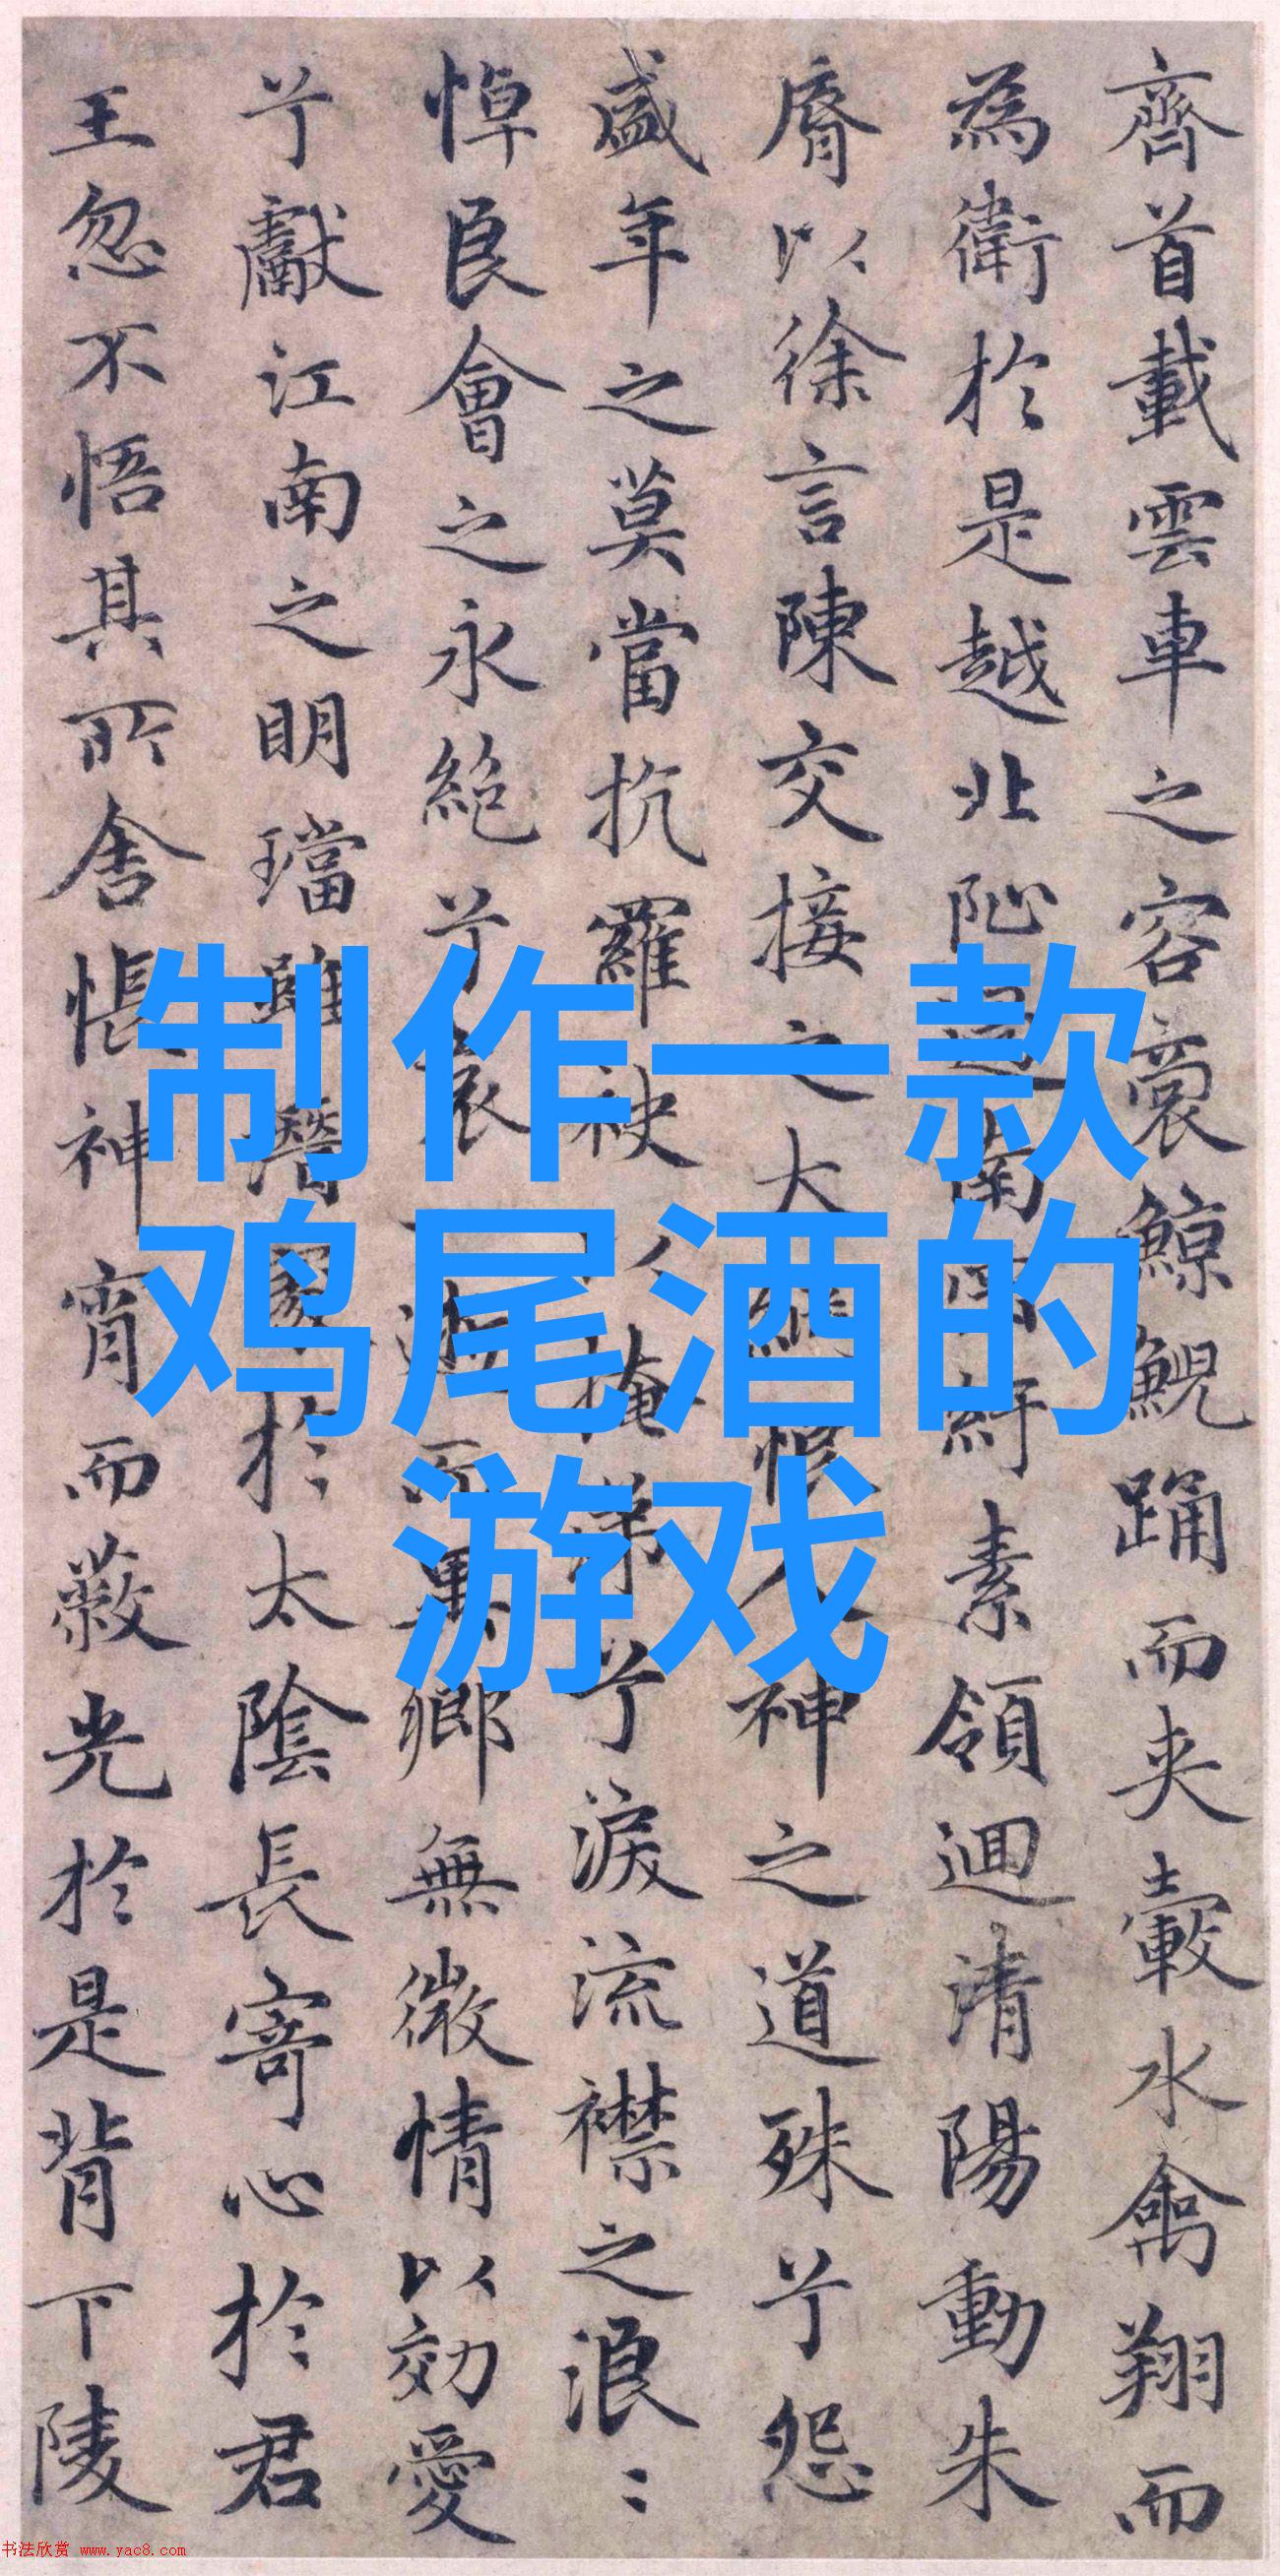 齊首載雲車之容裔鯨鯢踊而夾轂水禽翔而
為衛於是越北沚過南岡紆素領迴清陽動朱
脣以徐言陳交接之大綱恨人神之道殊兮怨
盛年之莫當抗羅袂以掩涕兮淚流襟之浪〻
悼良會之永絕兮哀一逝而異鄉無微情以効愛
兮獻江南之明璫雖潛處於太陰長寄心於君
王忽不悟其所舍悵神宵而蔽光於是背下陵
制作一款
鸡尾酒的
游戏
书法欣赏 www.yac8.com